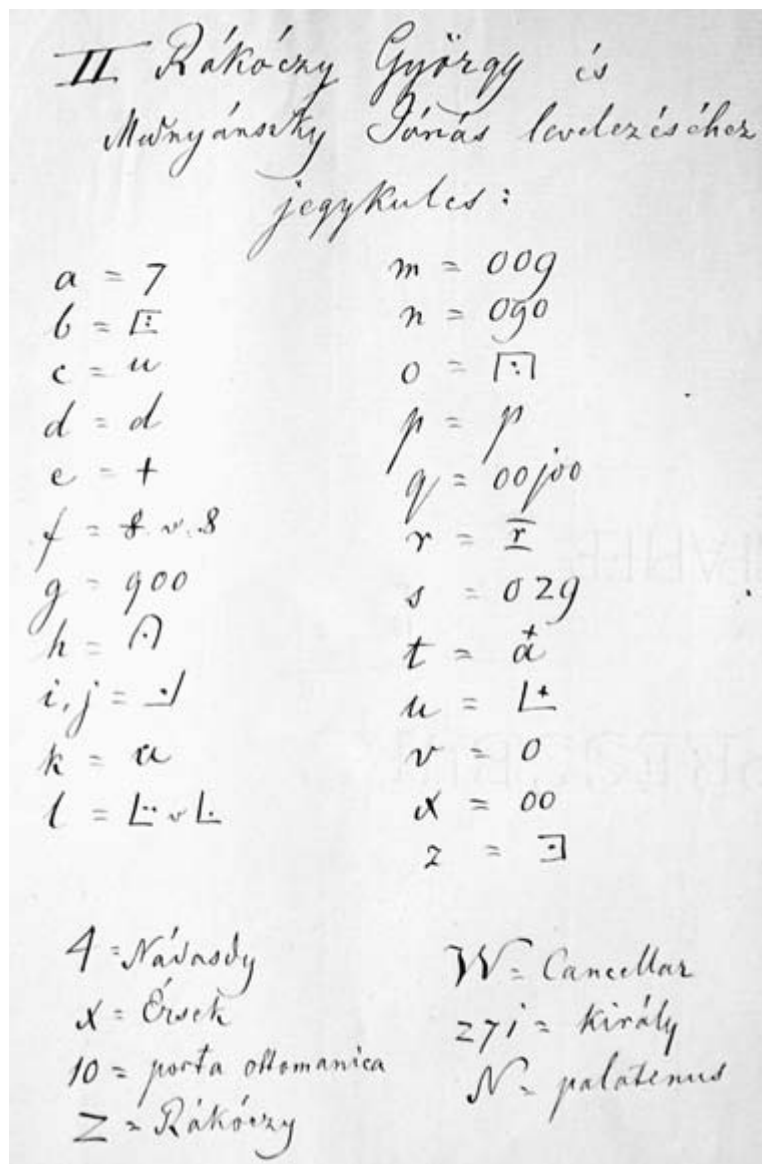 II Rákóczy György és
Mednyánszky Jónás levelezéséhez
jegykulcs:
a = 7
b =
c = u
d = d
e = +
f = 8 v. 8
g = 900
h =
i, j =
k = a
l = v
m = 009
n = 090
o =
p = p
q = 00j00
r = r
s = 029
t = a
u =
v = 0
x = 00
z =
4 = Nádasdy
x = Érsek
10 = porta ottomanica
Z = Rákóczy
W = Cancellar
z7i = király
N = palatenus